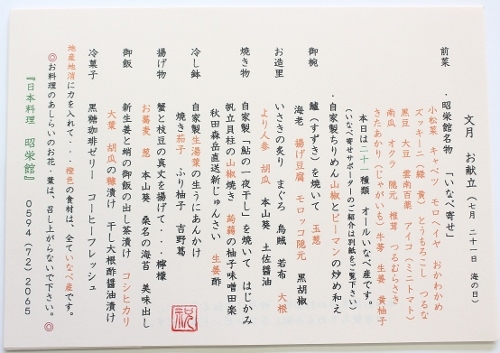 文月 お献立 (七月 二十一日 海の日)
前菜 ・昭栄館名物 「いなべ寄せ」
小松菜 キャベツ モロヘイヤ おかわかめ
ズッキーニ(緑 黄) とうもろこし つるな
黒豆 大豆 雲南百薬 アイコ(ミニトマト)
南瓜 オクラ 隠元 椎茸 つるむらさき
きたあかり(じゃがいも) 牛蒡 生姜 黄柚子
本日は二十一種類 オールいなべ産です。
(いなべ寄せサポーターのご紹介は別紙をご覧下さい)
・自家製ちりめん山椒とピーマンの炒め和え
御椀 鱸(すずき)を焼いて 玉葱
海老 揚げ豆腐 モロッコ隠元 黒胡椒
お造里 いさきの炙り まぐろ 烏賊 若布 大根
より人参 胡瓜 本山葵 土佐醤油
焼き物 自家製「鮎の一夜干し」を焼いて はじかみ
帆立貝柱の山椒焼き 蒟蒻の柚子味噌田楽
秋田森岳直送新じゅんさい 生姜酢
冷し鉢 自家製生湯葉の生うにあんかけ
焼き茄子 ふり柚子 吉野葛
揚げ物 蟹と枝豆の真丈を揚げて・・・檸檬
お蕎麦 葱 本山葵 桑名の海苔 美味出し
御飯 新生姜と蛸の御飯の出し茶漬け コシヒカリ
大葉 胡瓜の糠漬け 干し大根酢醤油漬け
冷菓子 黒糖珈琲ゼリー コーヒーフレッシュ
地産地消に力を入れて・・・橙色の食材は、全ていなべ産です。
◎お料理のあしらいのお花・葉は、召し上がらないで下さい。◎
『日本料理 昭栄館』 0594(72)2065
祝